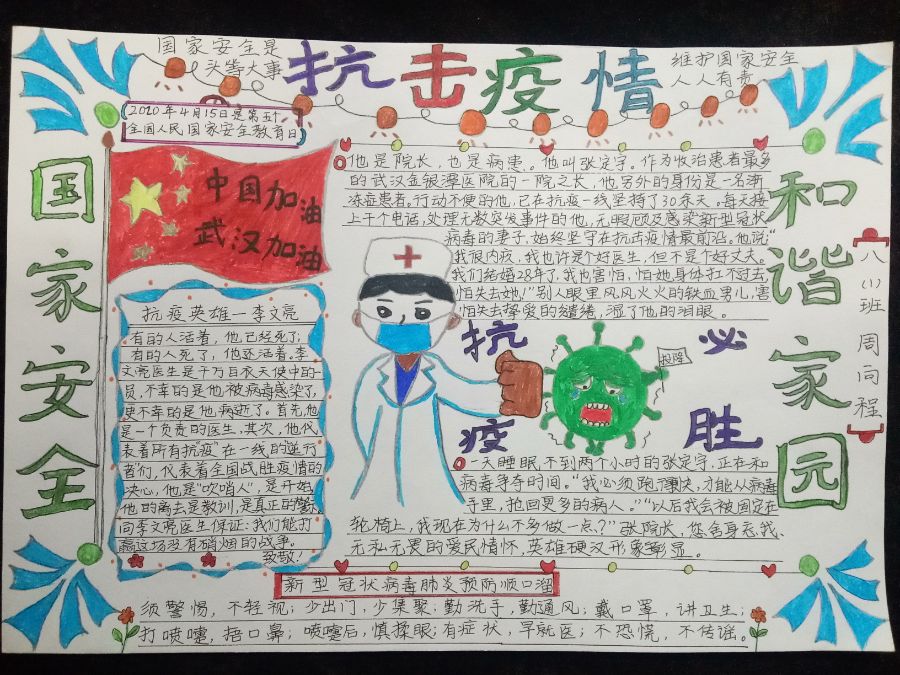 国家安全是
头等大事
抗击疫情
维护国家安全
人人有责
2020年4月15日是第五个
全国人民国家安全教育日
国家安全
中国加油
武汉加油
抗疫英雄—李文亮
有的人活着，他已经死了；
有的人死了，他还活着。李
文亮医生是千万白衣天使中的一
员，不幸的是他被病毒感染了，
更不幸的是他病逝了。首先，他
是一个负责的医生，其次，他代
表着所有抗"疫"在一线的逆行
者们，代表着全国战胜疫情的
决心，他是"吹哨人"，是开始，
他的离去是教训，是真正的
向李文亮医生保证：我们能打
赢这场没有硝烟的战争。
致敬！
他是院长，也是病患。他叫张定宇。作为收治患者最多
的武汉金银潭医院的一院之长，他另外的身份是一名渐
冻症患者。行动不便的他，已在抗疫一线坚持了30余天。每天接
上千个电话，处理无数突发事件的他，无暇顾及感染新型冠状
病毒的妻子，始终坚守在抗击疫情最前沿。他说："
我很内疚，我也许是个好医生，但不是个好丈夫。
我们结婚28年了，我也害怕，怕她身体扛不过去，
怕失去她！"别人眼里风风火火的铁血男儿，害
怕失去挚爱的缱绻，湿了他的泪眼。
抗疫
必胜
投降
一天睡眠不到两个小时的张定宇，正在和
病毒争夺时间。"我必须跑得更快，才能从病毒
手里，抢回更多的病人。""以后我会被固定在
轮椅上，我现在为什么不多做一点？"张院长，您舍身忘我、
无私无畏的爱民情怀，英雄硬汉形象彰显。
和谐家园
八(1)班 周向程
新型冠状病毒肺炎预防顺口溜
须警惕，不轻视；少出门，少集聚；勤洗手，勤通风；戴口罩，讲卫生；
打喷嚏，捂口鼻；喷嚏后，慎揉眼；有症状，早就医；不恐慌，不传谣。